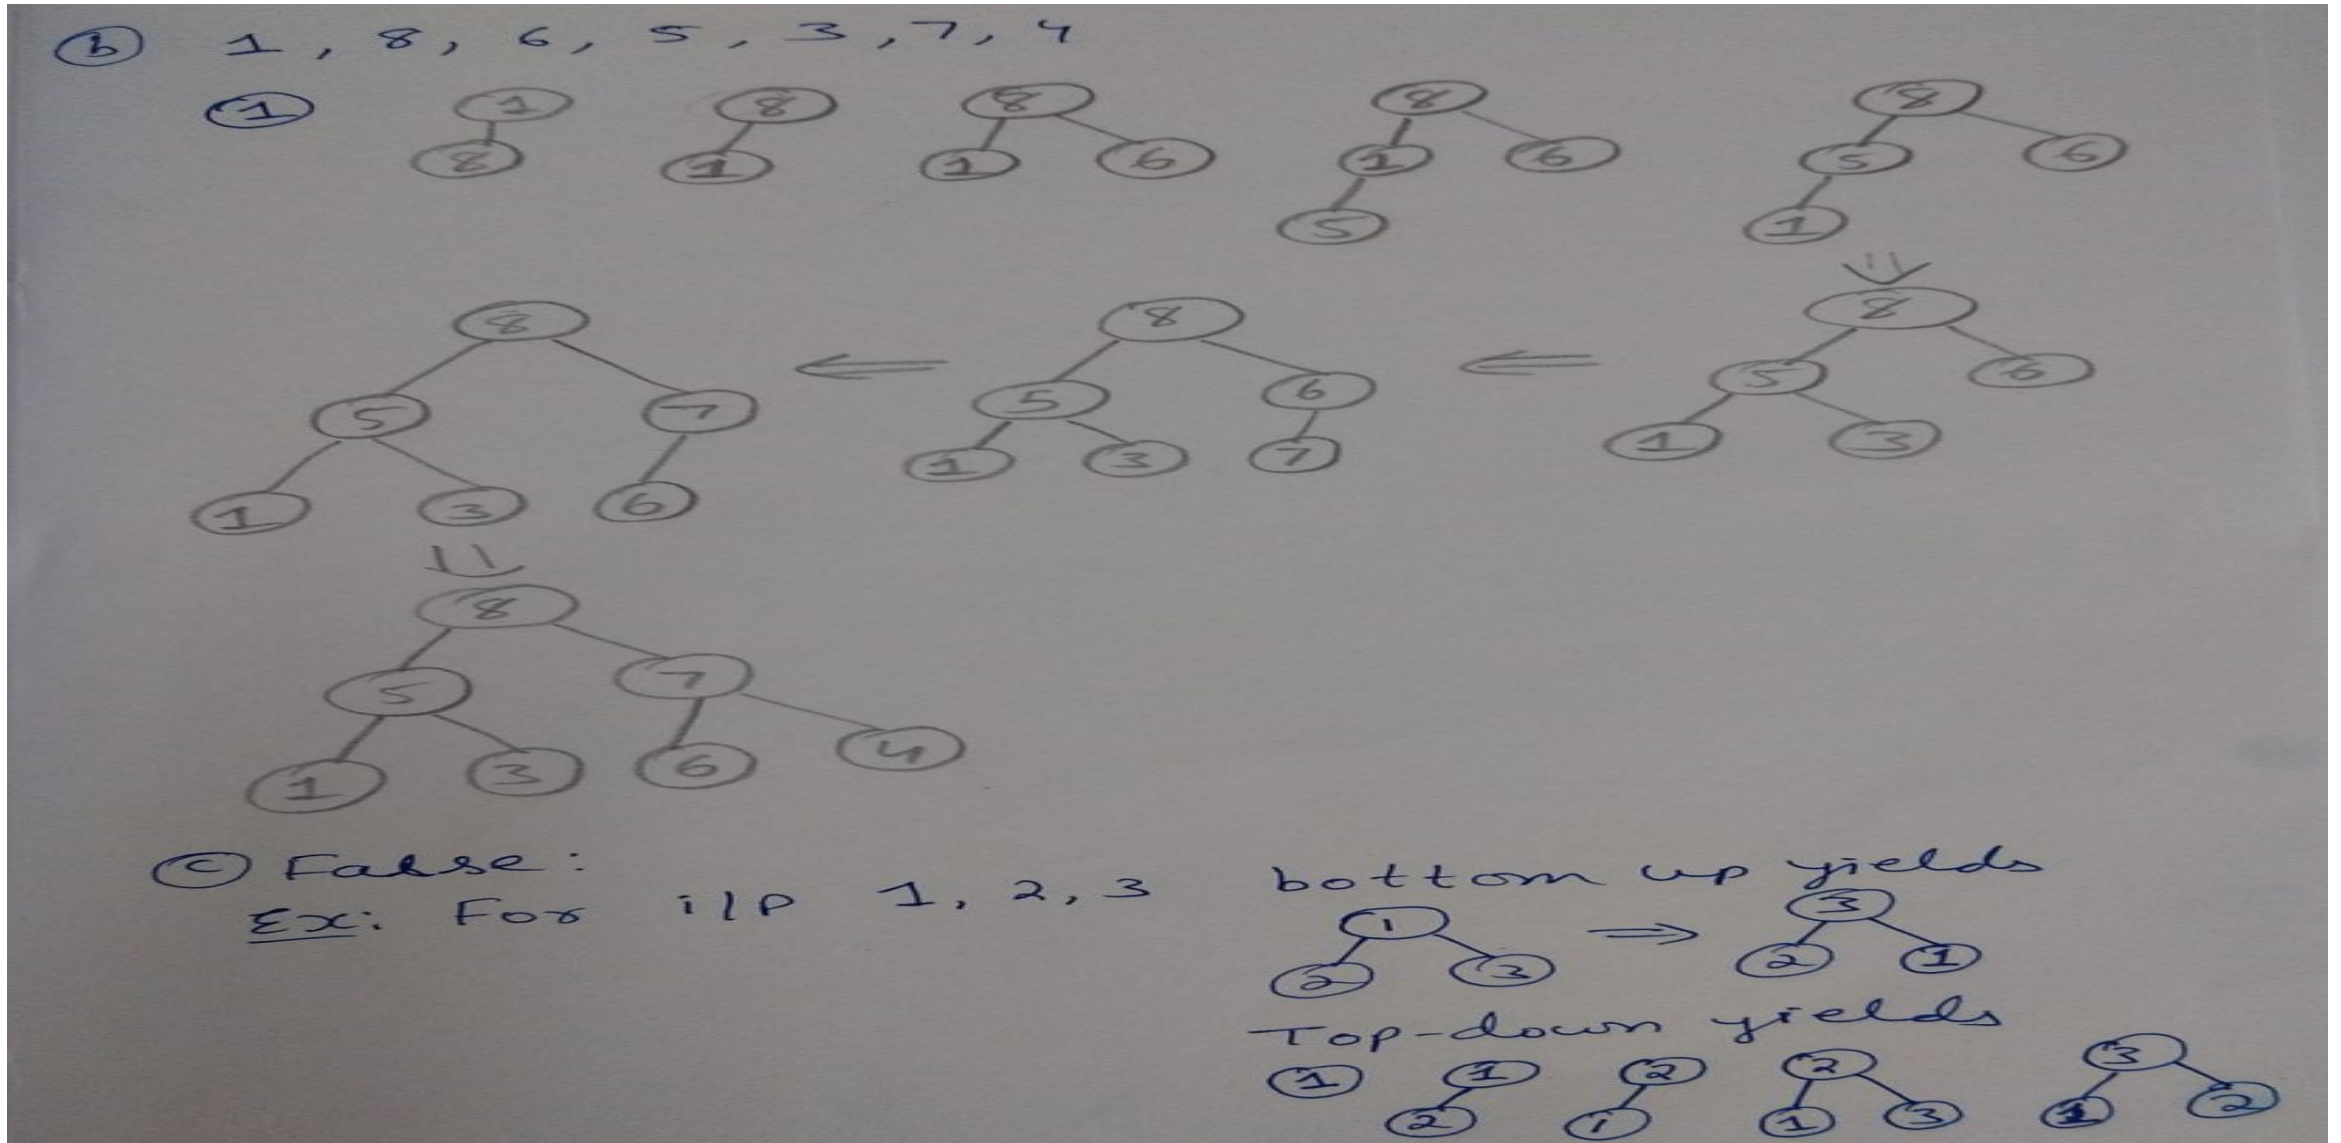 (b) 1, 8, 6, 5, 3, 7, 4
1 1 8 8 8 8
8 1 1 6 1 6 5 6
5 1
8 8 8
5 7 5 6 5 6
1 3 6 1 3 7 1 3
8
5 7
1 3 6 4
(c) False:
Ex: For i/p 1, 2, 3 bottom up yields
1 3
2 3 2 1
Top-down yields
1 1 2 2 3
2 1 1 3 1 2